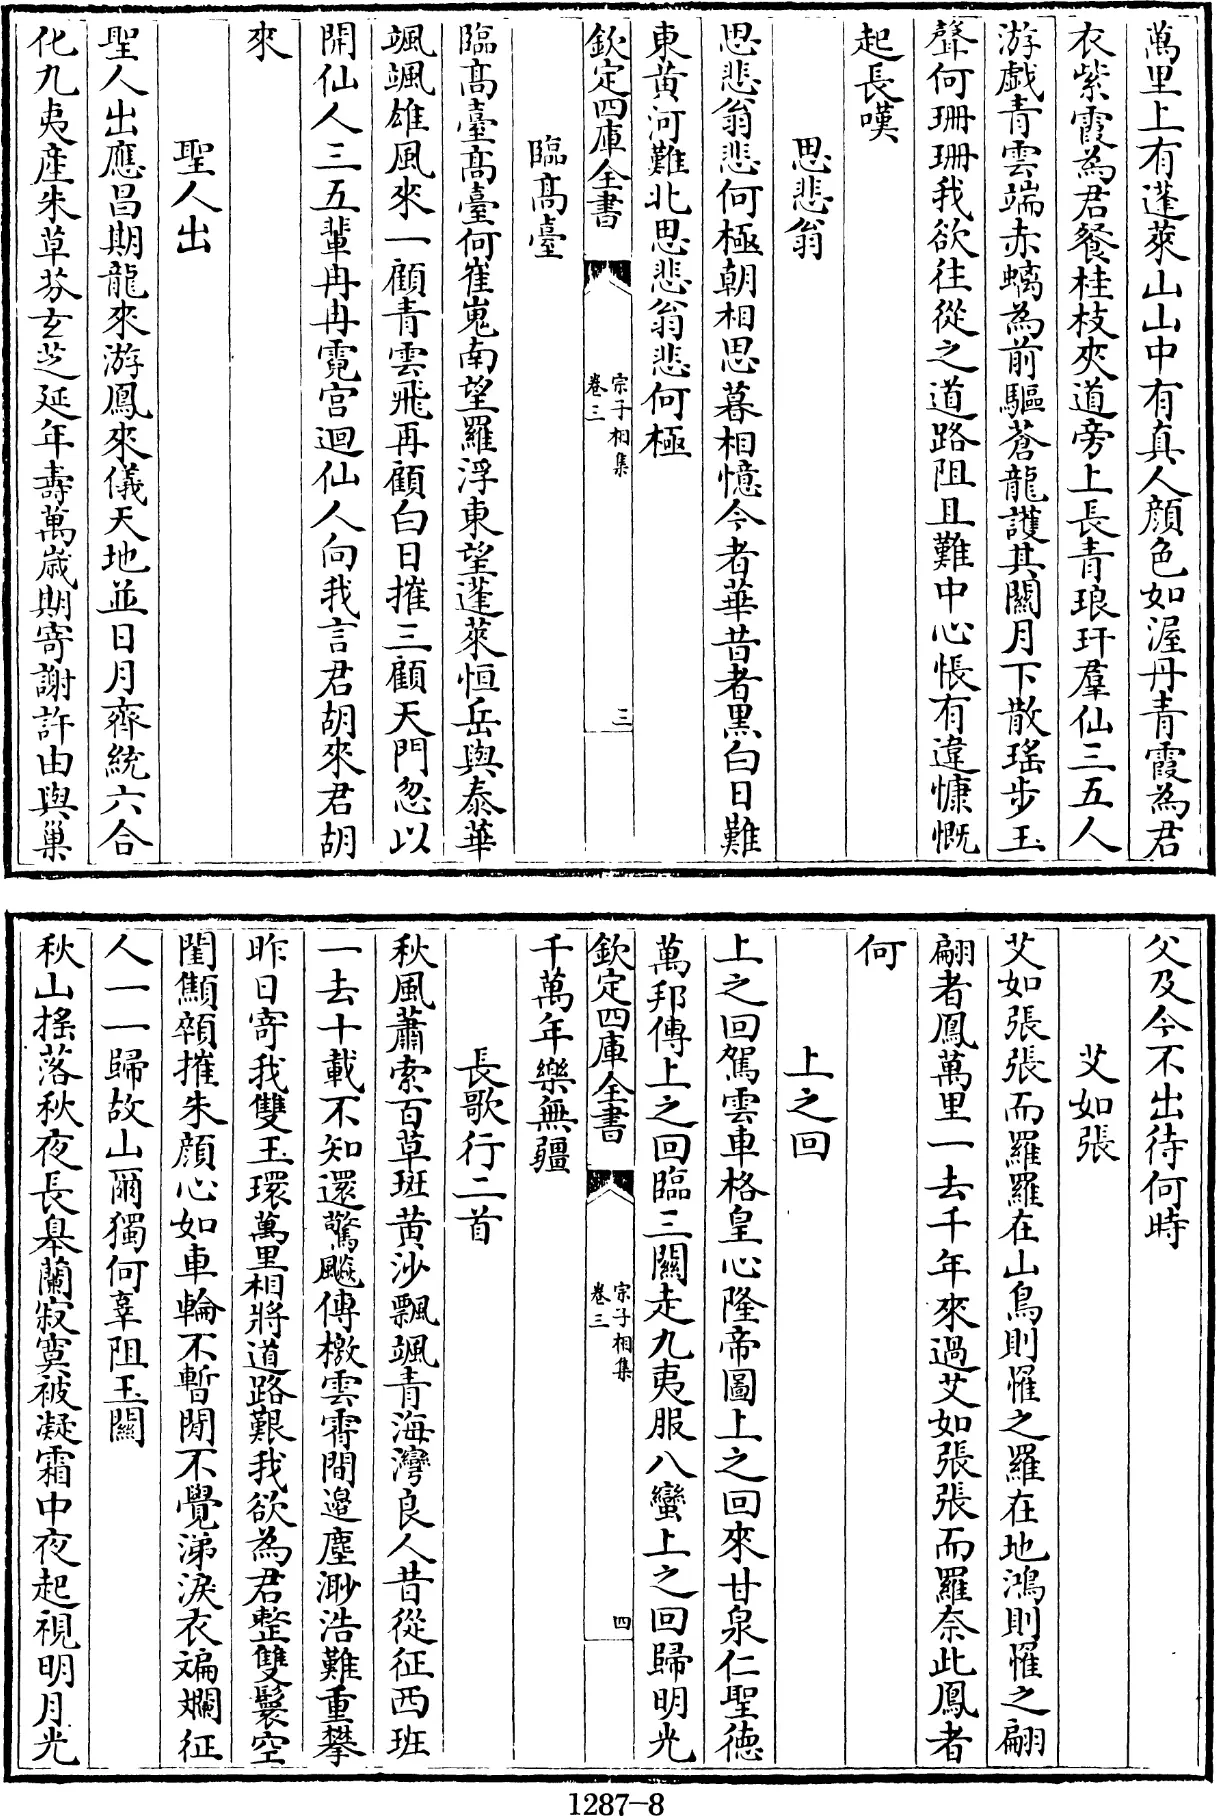 萬里上有蓬萊山山中有真人顔色如渥丹青霞為君
衣紫霞為君餐桂枝夾道旁上長青琅玕羣仙三五人
游戲青雲端赤螭為前驅蒼龍護其關月下散瑤步玉
聲何珊珊我欲往從之道路阻且難中心悵有違慷慨
起長嘆
思悲翁
思悲翁悲何極朝相思暮相憶今者華昔者黑白日難
東黄河難北思悲翁悲何極
欽定四庫全書
宗子相集
卷三
三
臨髙臺
臨髙臺髙臺何崔嵬南望羅浮東望蓬萊恒岳與泰華
颯颯雄風來一顧青雲飛再顧白日摧三顧天門忽以
開仙人三五輩冉冉霓宫迴仙人向我言君胡來君胡
來
聖人出
聖人出應昌期龍來游鳳來儀天地並日月齊統六合
化九夷産朱草芬玄芝延年壽萬歲期寄謝許由與巢
父及今不出待何時
艾如張
艾如張張而羅羅在山鳥則罹之羅在地鴻則罹之翩
翩者鳳萬里一去千年來過艾如張張而羅奈此鳳者
何
上之回
上之回駕雲車格皇心隆帝圖上之回來甘泉仁聖德
萬邦傳上之回臨三關走九夷服八蠻上之回歸明光
欽定四庫全書
宗子相集
卷三
四
千萬年樂無疆
長歌行二首
秋風蕭索百草斑黄沙飄颯青海灣良人昔從征西班
一去十載不知還驚飇傳檄雲霄間邉塵渺浩難重攀
昨日寄我雙玉環萬里相將道路艱我欲為君整雙鬟空
閨顦顇摧朱顔心如車輪不暫閒不覺涕淚衣斒斕征
人一一歸故山爾獨何辜阻玉關
秋山摇落秋夜長臯蘭寂寞被凝霜中夜起視明月光
1287-8